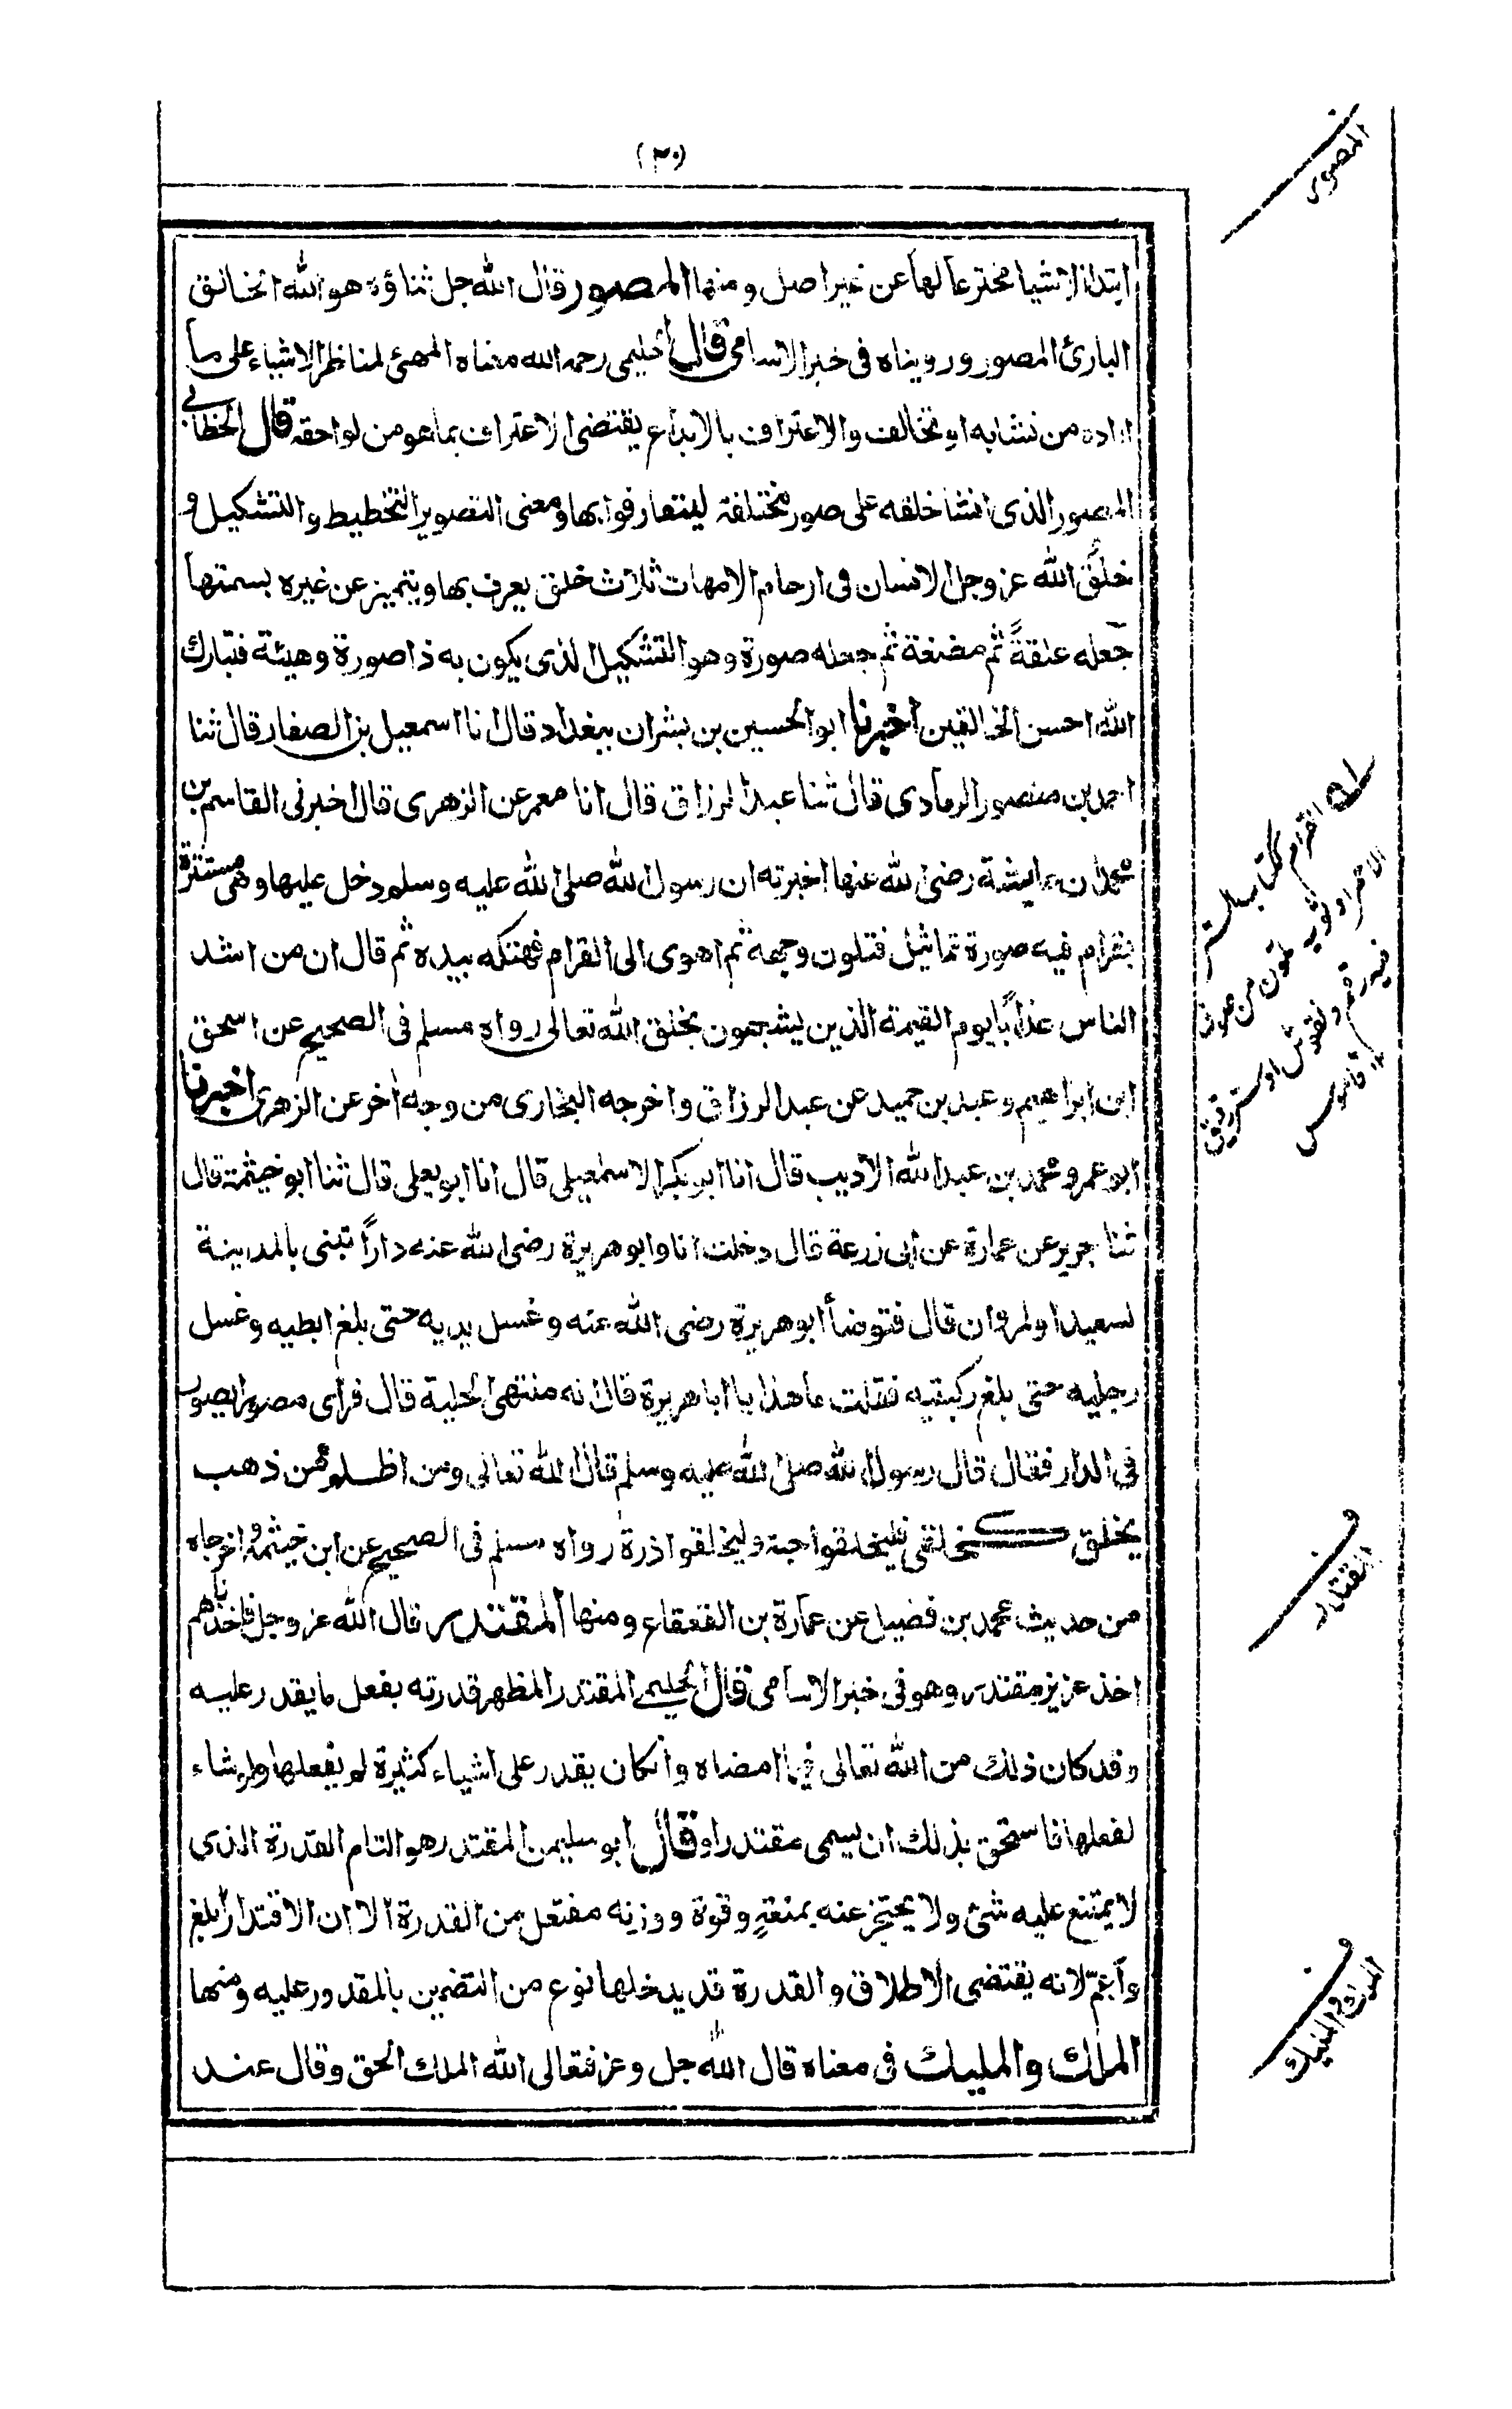 (٣٠)
المصور
ابتدا الاشيا مخترعا لها عن غير اصل ومنها المصور قال الله جل ثناؤه هو الله الخالق
البارئ المصور ورويناه في خبر الاسامي قال الحليمي رحمه الله معناه المهيئ لمناظر الاشياء على ما
اراده من تشابه او تخالف والاعتراف بالابداع يقتضى الاعتراف بما هو من لواحقه قال الخطابي
المصور الذى انشا خلقه على صور مختلفة ليتعارفوا بها ومعنى التصوير التخطيط والتشكيل و
خلق الله عز وجل الانسان فى ارحام الامهات ثلاث خلق يعرف بها ويتميز عن غيره بسمتها
جعله علقةً ثم مضغة ثم جعله صورة وهو التشكيل الذى يكون به ذا صورة وهيئة فتبارك
الله احسن الخالقين اخبرنا ابو الحسين بن بشران ببغداد قال انا اسمعيل بن الصفار قال ثنا
احمد بن منصور الرمادى قال ثنا عبد الرزاق قال انا معمر عن الزهرى قال اخبرنى القاسم بن
محمد ان عايشة رضى الله عنها اخبرته ان رسول الله صلى الله عليه وسلم دخل عليها وهى مستترة
بقرام فيه صورة تماثيل فتلون وجهه ثم اهوى الى القرام فهتكه بيده ثم قال ان من اشد
الناس عذابًا يوم القيمة الذين يشبهون بخلق الله تعالى رواه مسلم فى الصحيح عن اسحق
ابن ابراهيم وعبد بن حميد عن عبد الرزاق واخرجه البخارى من وجه اٰخر عن الزهرى اخبرنا
ابو عمرو محمد بن عبد الله الاديب قال انا ابو بكر الاسمٰعيلى قال انا ابو يعلى قال ثنا ابو خيثمة قال
ثنا جرير عن عمارة عن ابى زرعة قال دخلت انا وابو هريرة رضى الله عنه دارًا تبنى بالمدينة
لسعيد او لمروان قال فتوضأ ابو هريرة رضى الله عنه وغسل يديه حتى بلغ ابطيه وغسل
رجليه حتى بلغ ركبتيه فقلت ما هذا يا ابا هريرة قال انه منتهى الحلية قال فراى مصورا يصور
فى الدار فقال قال رسول الله صلى الله عليه وسلم قال الله تعالى ومن اظلم ممن ذهب
يخلق كخلقى فليخلقوا حبة وليخلقوا ذرة رواه مسلم فى الصحيح عن ابن خيثمة واخرجاه
من حديث محمد بن فضيل عن عمارة بن القعقاع ومنها المقتدر قال الله عز وجل فاخذناهم
اخذ عزيز مقتدر وهو فى خبر الاسامى قال الحليمى المقتدر المظهر قدرته بفعل ما يقدر عليه
وقد كان ذلك من الله تعالى فيما امضاه وانكان يقدر على اشياء كثيرة لم يفعلها ولو شاء
لفعلها فاستحق بذلك ان يسمى مقتدرا وقال ابو سليمن المقتدر هو التام القدرة الذى
لا يمتنع عليه شئ ولا يحتجز عنه بمنعةٍ وقوة ووزنه مفتعل من القدرة الا ان الاقتدار ابلغ
واعمّ لانه يقتضى الاطلاق والقدرة قد يدخلها نوع من التضمين بالمقدور عليه ومنها
الملك والمليك فى معناه قال الله جل وعز فتعالى الله الملك الحق وقال عند
القرام ككتاب الستر
الاحمر او ثوب ملون من صوف
فيه رقم ونقوش او ستر رقيق
قاموس
المقتدر
الملك والمليك